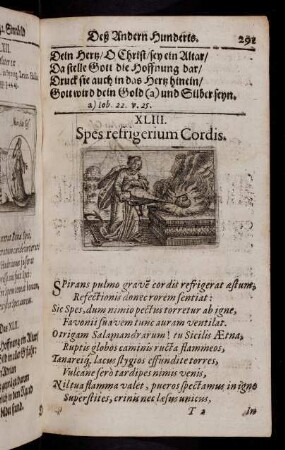 Deß Andern Hunderts. 291
Dein Hertz/ O Christ/ sey ein Altar/
Da stelle Gott die Hoffnung dar/
Druck sie auch in das Hertz hinein/
Gott wird dein Gold (a) und Silber seyn.
a) Iob. 22. v. 25.
XLIII.
Spes refrigerium Cordis.
Spirans pulmo gravẽ cordis refrigerat æstum,
Refectionis donec rorem sentiat:
Sic Spes, dum nimio pectus torretur ab igne,
Favonii suavem tunc auram ventilat.
O trigam Salamandrarum! tu Sicilis Ætna,
Ruptis globos caminis ructa flamineos,
Tanareiq; lacus stygios effundite torres,
Vulcane ferò tardipes nimis venis,
Nil tua flamma valet, pueros spectamus in igne
Superstites, crinis nec læsus unicus,
T 2 In